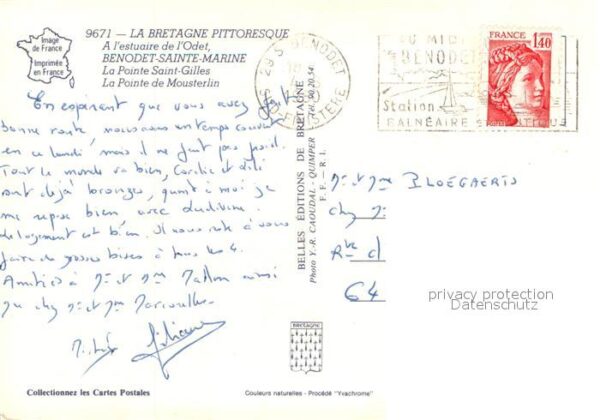 Image
de France
Imprimée
en France
9671 — LA BRETAGNE PITTORESQUE
A l'estuaire de l'Odet,
BENODET-SAINTE-MARINE
La Pointe Saint-Gilles
La Pointe de Mousterlin
En espérant que vous avez fait
bonne route, nous avons un temps couvert
en ce lundi, mais il ne fait pas froid.
Tout le monde va bien, et
sont déjà bronzés, quant à moi je
me repose bien avec
le logement est bien. Il nous reste à vous
faire de grosses bises à tous les 4.
Amitiés à Mr et Mme ainsi
que chez Mr et Mme
29 S BENODET
FINISTERE
AU MIDI
BENODET
Station
BALNÉAIRE
FRANCE
1,40
BELLES ÉDITIONS DE BRETAGNE
Tél. 90.20.54
Photo Y.-R. CAOUDAL - QUIMPER
Mr et Mme BLOEGAERTS
chez Mr
Rte d
64
privacy protection
Datenschutz
BRETAGNE
Collectionnez les Cartes Postales
Couleurs naturelles - Procédé "Yvachrome"